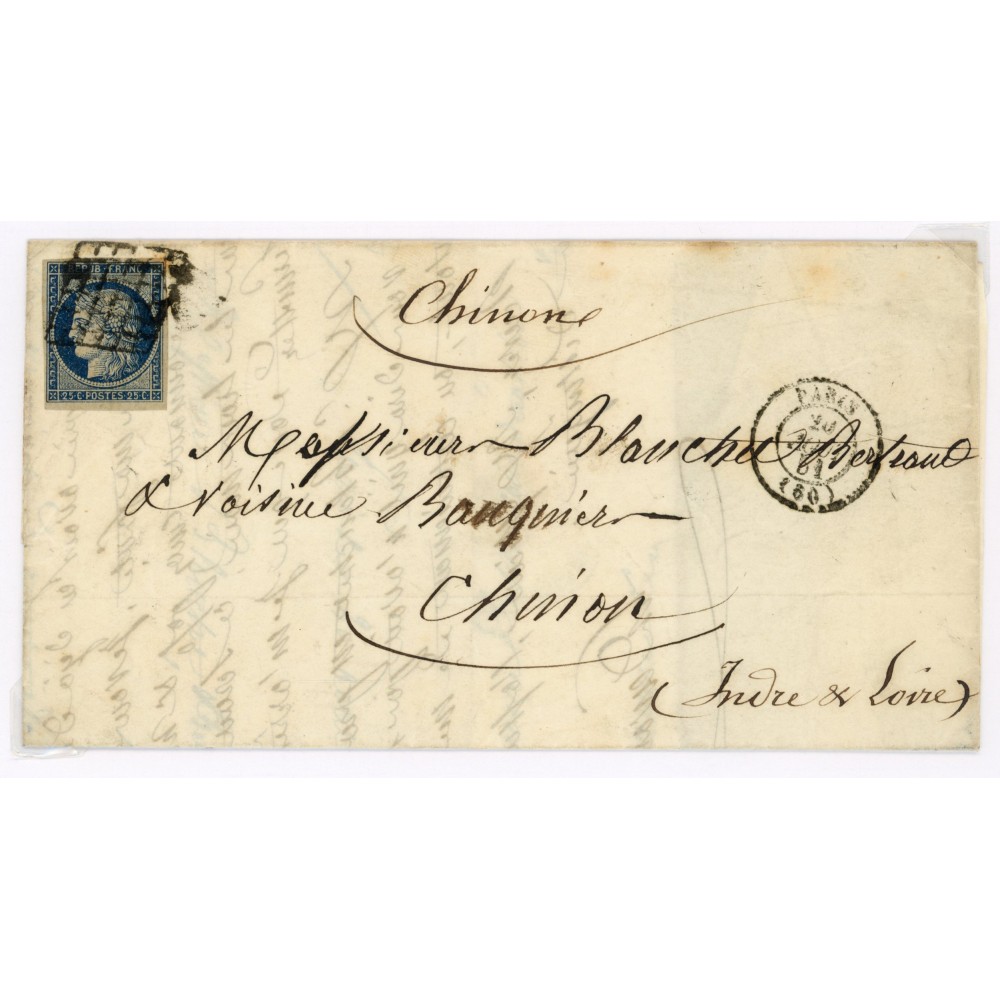 REPUB · FRANC
25·C POSTES · 25·C
Chinon
PARIS
20
51
(60)
Messieurs Blanchet Berteaut
& Voisine Banquiers
Chinon
(Indre & Loire)